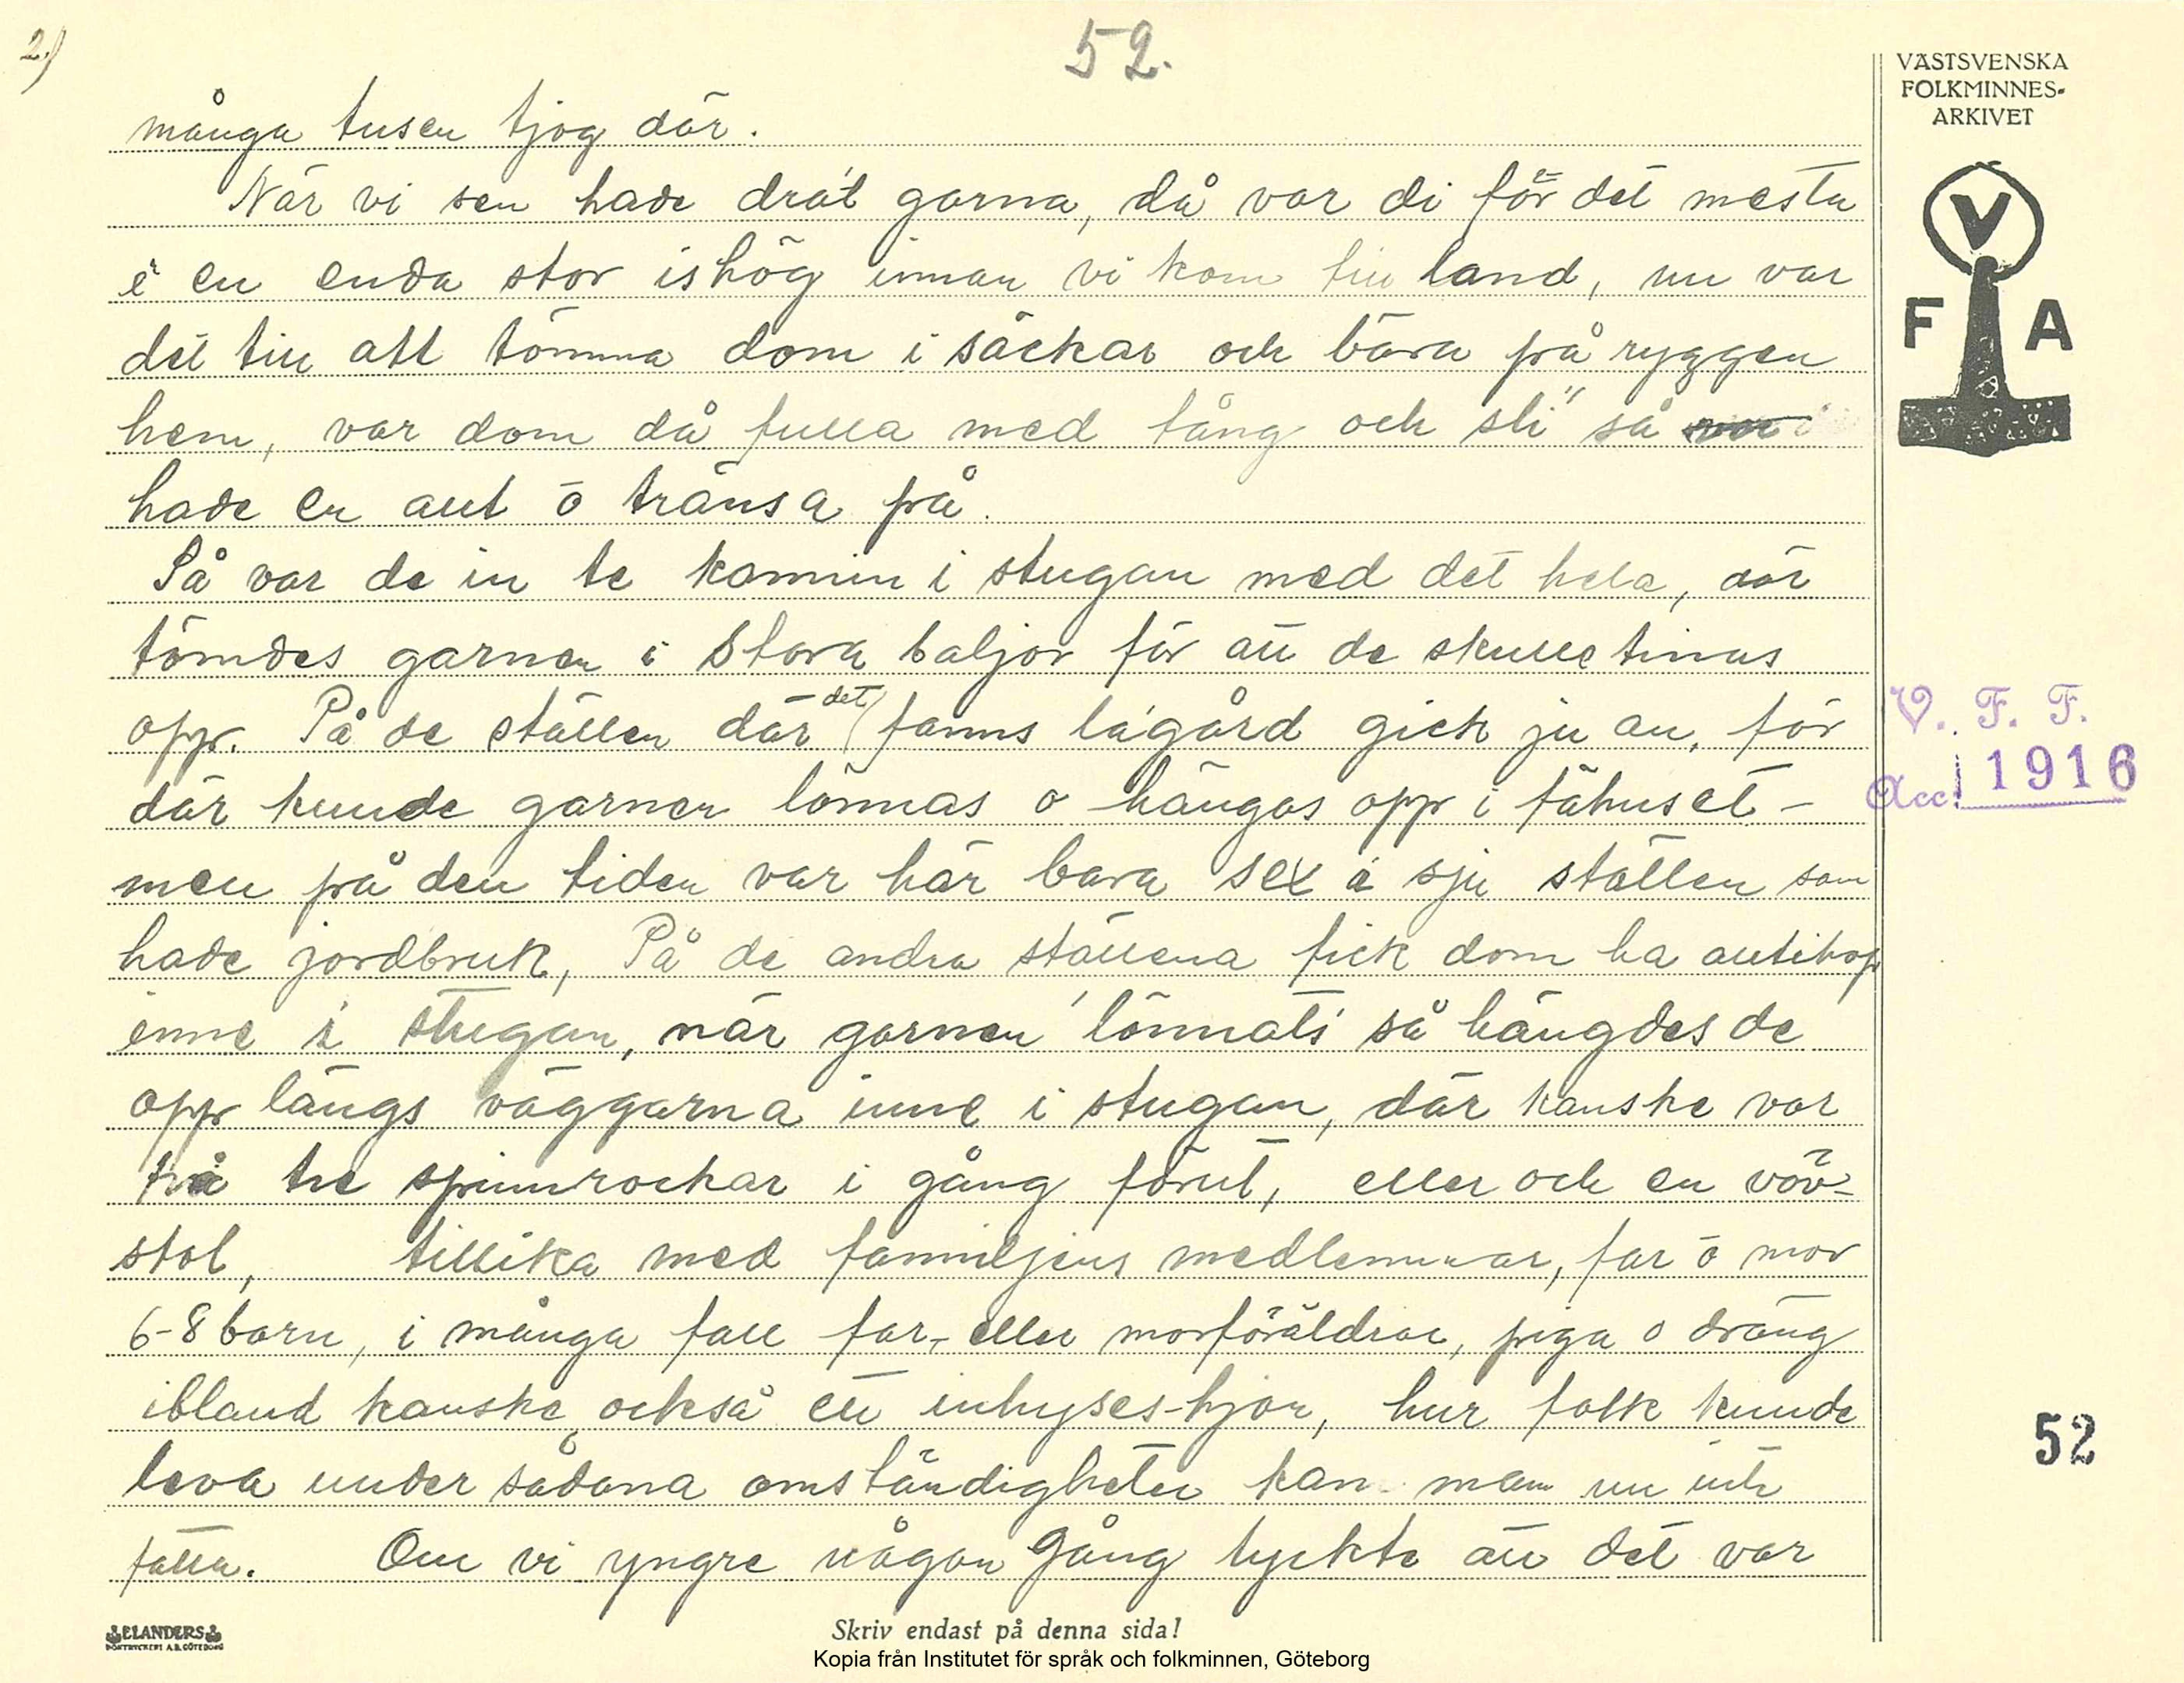 2.)
52.
VÄSTSVENSKA
FOLKMINNES-
ARKIVET
många tusen tjog där.
När vi sen hade drát garna, då var di för det mesta
é en enda stor ishög innan vi kom till land, nu var
det till att tömma dom i säckar och bära på ryggen
hem, var dom då fulla med tång och sli" så
hade en allt ö tränsa på.
Så var de in te kammin i stugan med det hela, där
tömdes garnen i stora baljor för att de skulle tinas
opp. På de ställen där det fanns lágård gick ju an, för
där kunde garnen lönnas o hängas opp i fähuset -
men på den tiden var här bara sex á sju ställen som
hade jordbruk, På de andra ställena fick dom ha alltihop
inne i stugan, när garnen 'lönnats' så hängdes de
opp längs väggarna inne i stugan, där kanske var
två tre spinnrockar i gång förut, eller och en väv-
stol, tillika med familjens medlemmar, far ö mor
6-8 barn, i många fall far- eller morföräldrar, piga o dräng
ibland kanske också ett inhyses-hjon, hur folk kunde
leva under sådana omständigheter kan man nu inte
fatta. Om vi yngre någon gång tyckte att det var
V
F A
V. F. F.
Acc. 1916
52
ELANDERS
BOKTRYCKERI A.B. GÖTEBORG
Skriv endast på denna sida!
Kopia från Institutet för språk och folkminnen, Göteborg